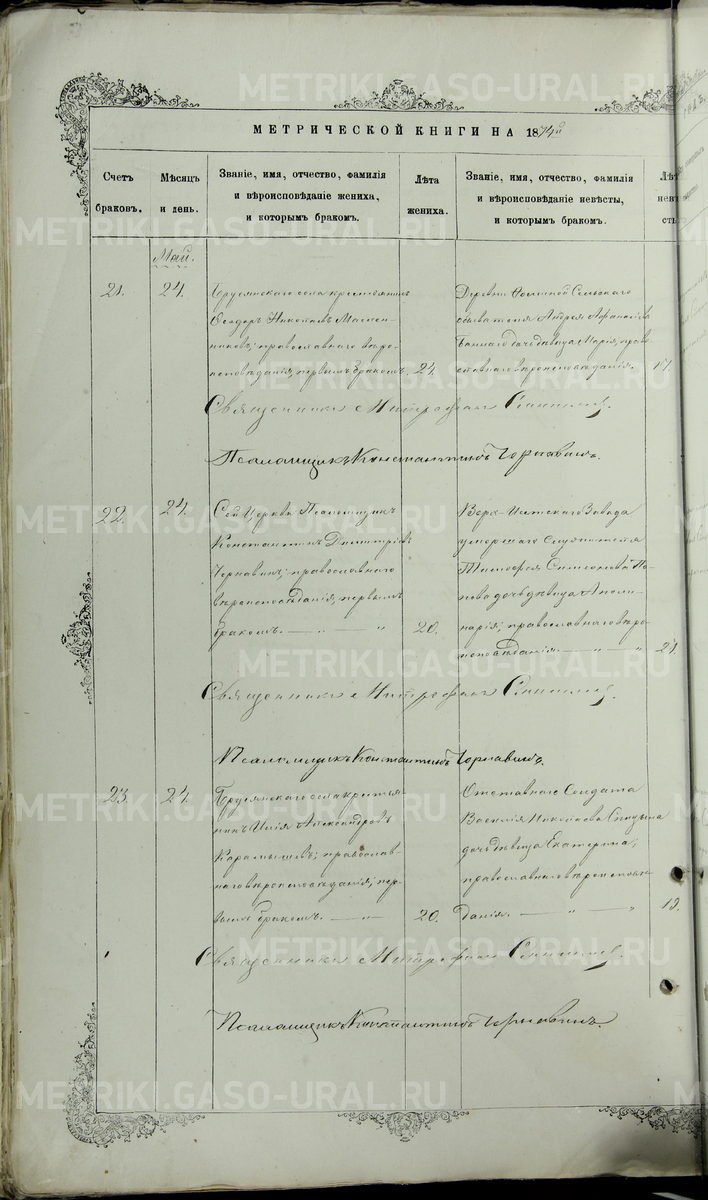 МЕТРИЧЕСКОЙ КНИГИ НА 1874й
Счетъ браковъ.
Мѣсяцъ и день.
Званіе, имя, отчество, фамилія
и вѣроисповѣданіе жениха,
и которымъ бракомъ.
Лѣта жениха.
Званіе, имя, отчество, фамилія
и вѣроисповѣданіе невѣсты,
и которымъ бракомъ.
Май.
21.
24.
Бруснянскаго села крестьянинъ
Ѳеодоръ
православнаго вѣро-
исповѣданія, первымъ бракомъ.
24.
Деревни Сельскаго
обывателя Андрея
дочь дѣвица Марія, прав-
ославнаго вѣроисповѣданія.
17.
Священникъ Митрофанъ
Псаломщикъ Константинъ Чернавинъ.
22.
24.
Сей Церкви Псаломщикъ
Константинъ Димитріевъ
Чернавинъ; православнаго
вѣроисповѣданія, первымъ
бракомъ. — „ — „
20.
Верх-Исетскаго Завода
умершаго Служителя
Тимофея Симеонова По-
пова дочь дѣвица Аполи-
нарія; православнаго вѣро-
исповѣданія. — „ — „
21.
Священникъ Митрофанъ
Псаломщикъ Константинъ Чернавинъ.
23.
24.
села крестья-
нинъ Илія Александровъ
Карамышевъ; православ-
наго вѣроисповѣданія; пер-
вымъ бракомъ. — „
20.
Отставнаго Солдата
Василія Николаева
дочь дѣвица Екатерина;
православнаго вѣроисповѣ-
данія. — „ — „
19.
Священникъ Митрофанъ
Псаломщикъ Константинъ Чернавинъ.
METRIKI.GASO-URAL.RU